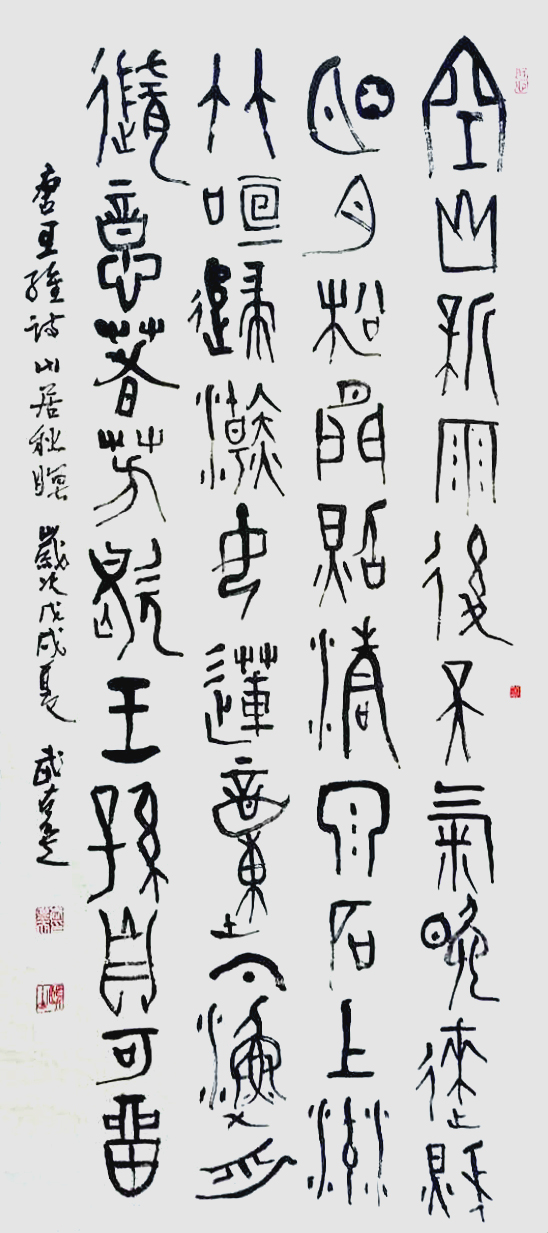 空山新雨後天氣晚來秋
明月松間照清泉石上流
竹喧歸浣女蓮動下漁舟
隨意春芳歇王孫自可留
唐王維詩山居秋暝 歲次戊戌夏 武